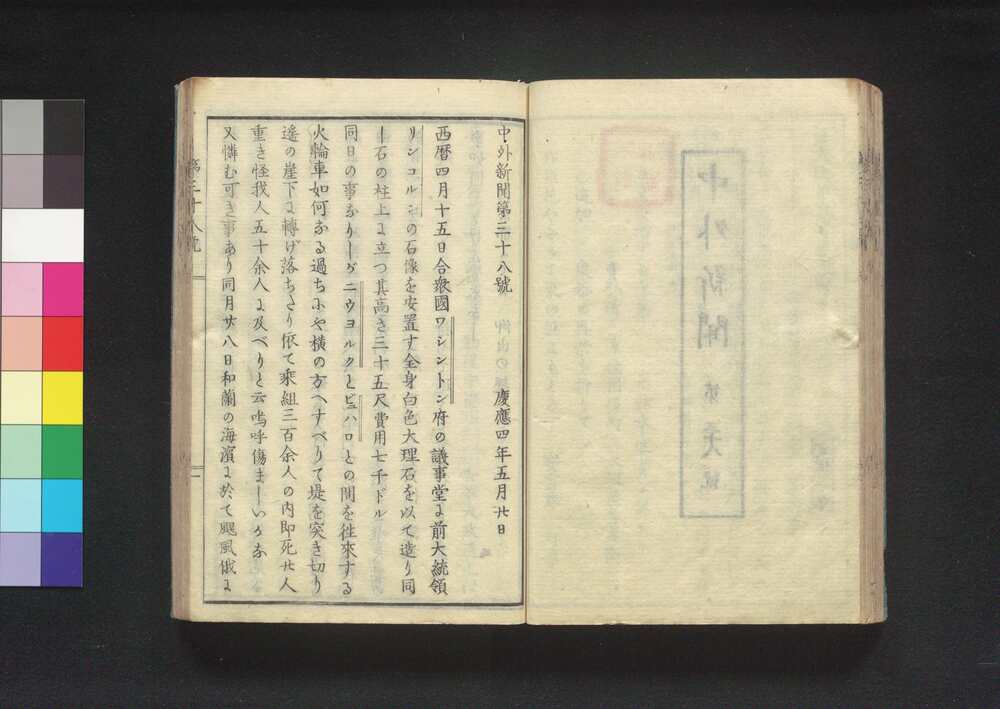 中外新聞第三十八號
慶應四年五月廿日
西暦四月十五日合衆國ワシントン府の議事堂に前大統領
リンコルンの石像を安置す全身白色大理石を以て造り同
じ石の柱上に立つ其高き三十五尺費用七千ドル
同日の事なりしがニウヨルクとビュハロとの間を往來する
火輪車如何なる過ちにや横の方へすべりて堤を突き切り
遙の崖下に轉げ落ちたり依て乘組三百余人の内即死廿人
重き怪我人五十余人に及べりと云嗚呼傷ましいかな
又憐む可き事あり同月廿八日和蘭の海濱に於て颶風俄に
第三十八號
一
中外新聞